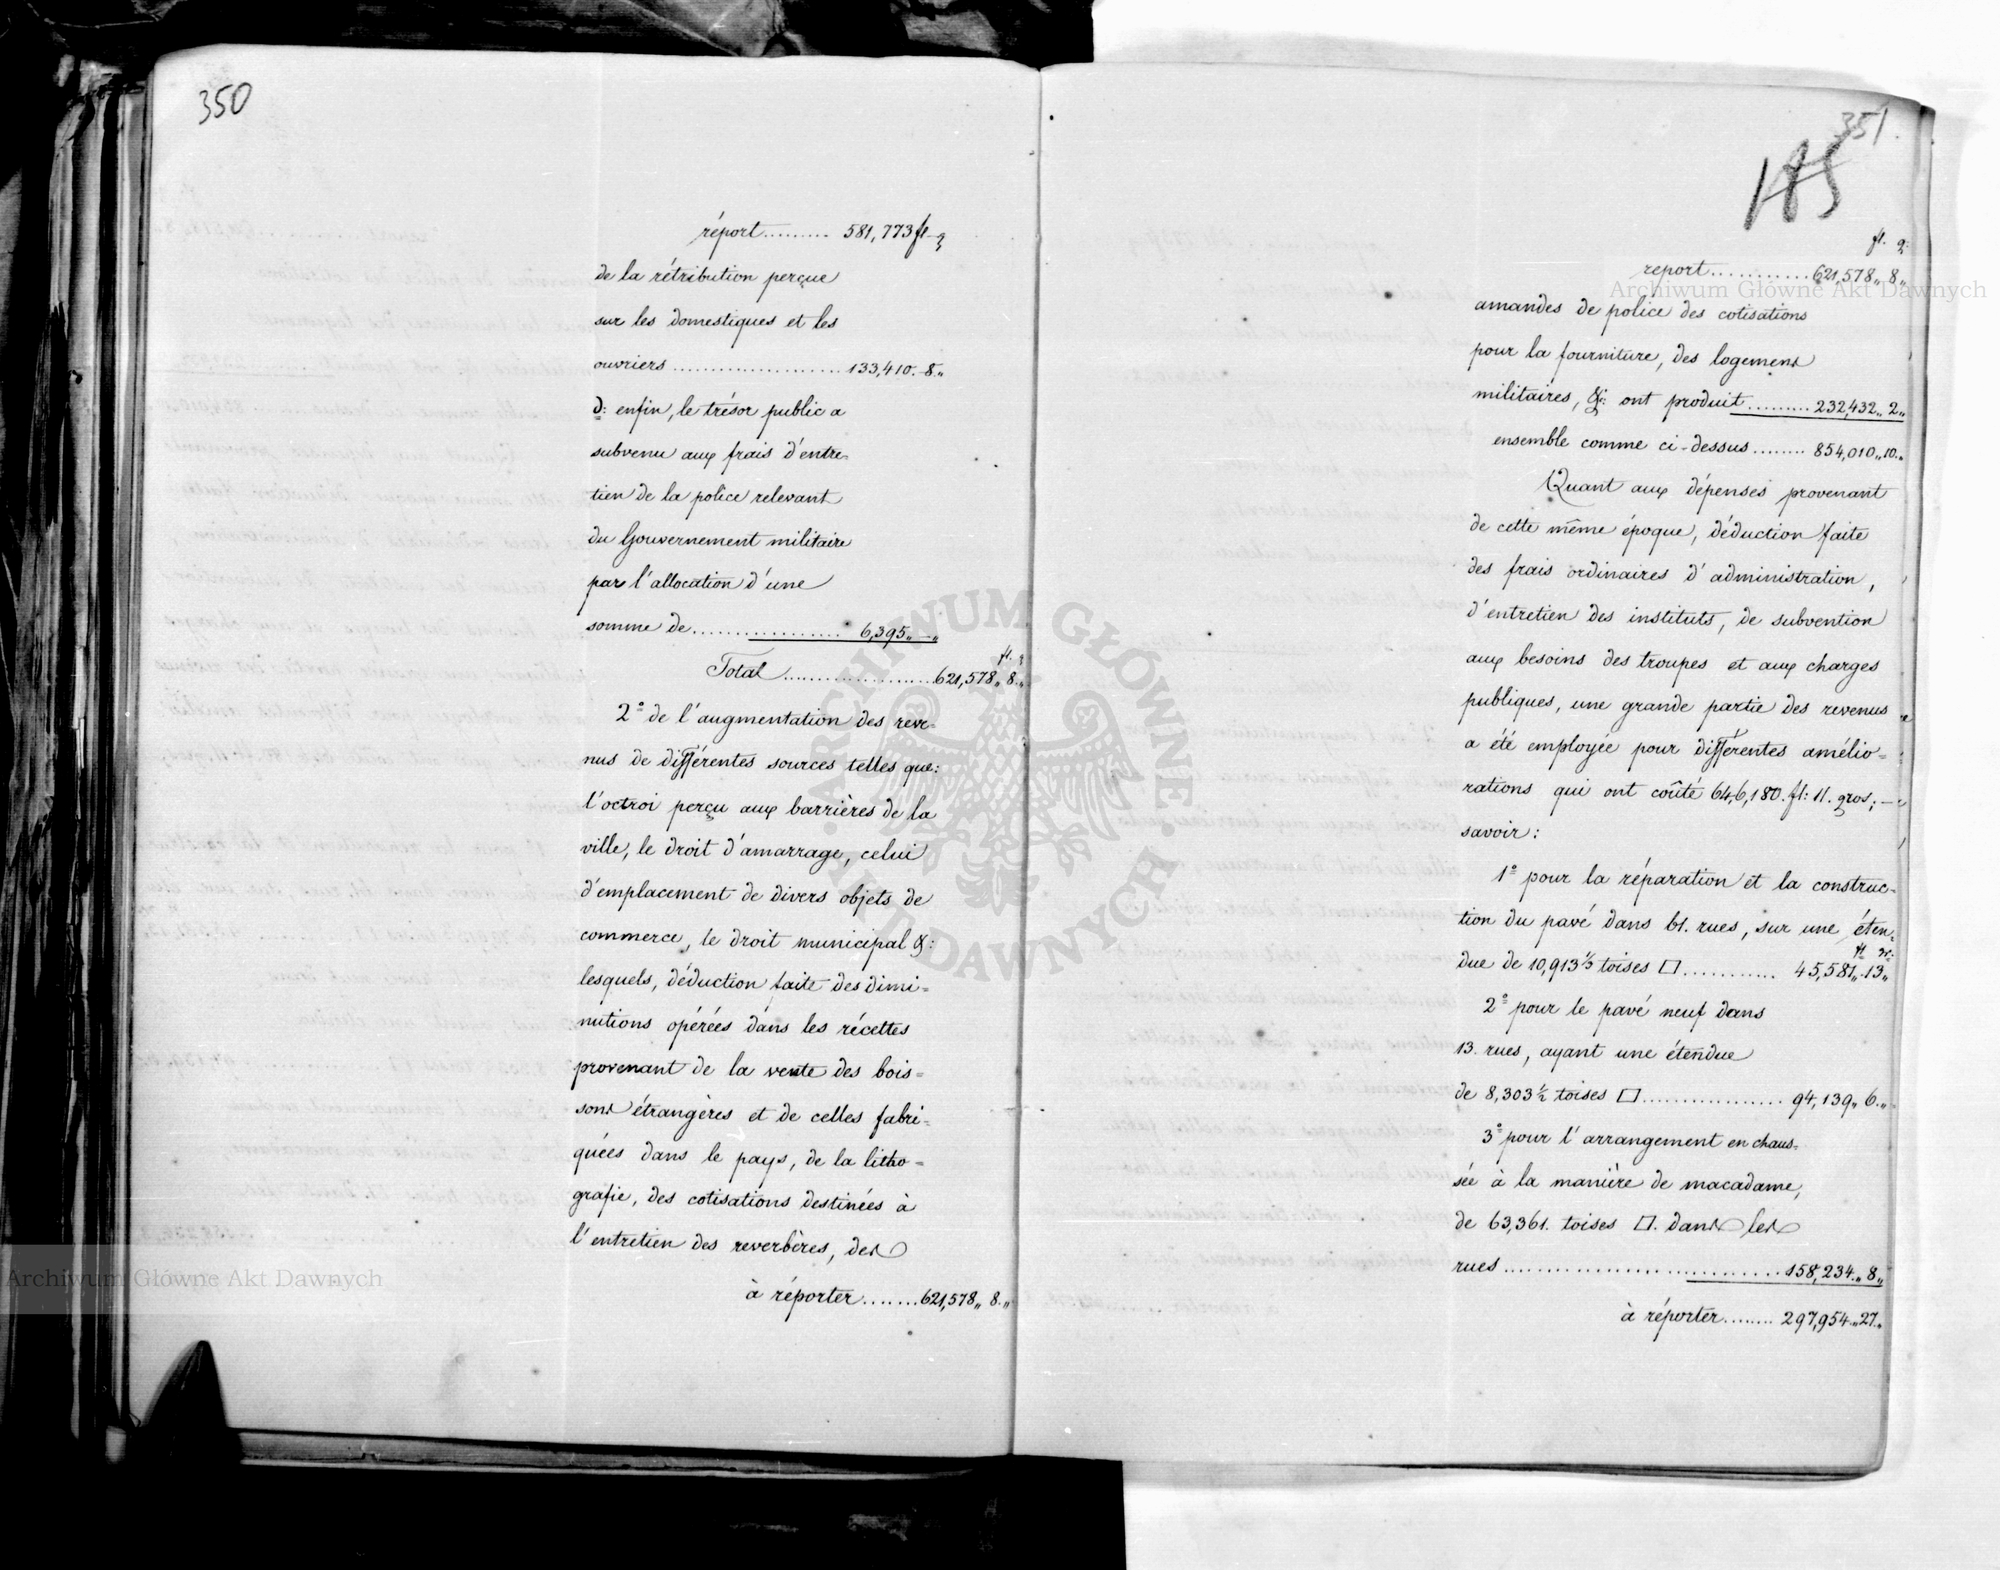 350
réport ......... 581,773 fl. - g
de la rétribution perçue
sur les domestiques et les
ouvriers ..................... 133,410.-8.„
d: enfin, le trésor public a
subvenu aux frais d'entre-
tien de la police relevant
du Gouvernement militaire
par l'allocation d'une
somme de .................. 6,395„ - „
fl. g
Total .................. 621,578„ 8.„
2º de l'augmentation des reve-
nus de différentes sources telles que:
l'octroi perçu aux barrières de la
ville, le droit d'amarrage, celui
d'emplacement de divers objets de
commerce, le droit municipal &:
lesquels, déduction faite des dimi=
nutions opérées dans les récettes
provenant de la vente des bois=
sons étrangères et de celles fabri=
quées dans le pays, de la litho=
grafie, des cotisations destinées à
l'entretien des reverbères, des
à réporter ....... 621,578„ 8.„
351.
185
fl. g:
report ............ 621,578„ 8„
amandes de police des cotisations
pour la fourniture, des logemens
militaires, &: ont produit ......... 232,432„ 2„
ensemble comme ci-dessus ........ 854,010„10.„
Quant aux dépenses provenant
de cette même époque, déduction faite
des frais ordinaires d'administration,
d'entretien des instituts, de subvention
aux besoins des troupes et aux charges
publiques, une grande partie des revenus
a été employée pour différentes amélio=
rations qui ont coûté 646,180. fl: 11. gros; —
savoir:
1º pour la réparation et la construc-
tion du pavé dans 61. rues, sur une éten-
fl gr:
due de 10,913 1/3 toises □ ........... 45,581„ 13„
2º pour le pavé neuf dans
13. rues, ayant une étendue
de 8,303 1/2 toises □ ................. 94,139„ 6.„
3º pour l'arrangement en chaus-
sée à la manière de macadame,
de 63,361. toises □. dans les
rues ............................ 158,234.„ 8„
à réporter ........ 297,954.„27.„
Archiwum Główne Akt Dawnych
Archiwum Główne Akt Dawnych
ARCHIWUM GŁÓWNE
AKT DAWNYCH